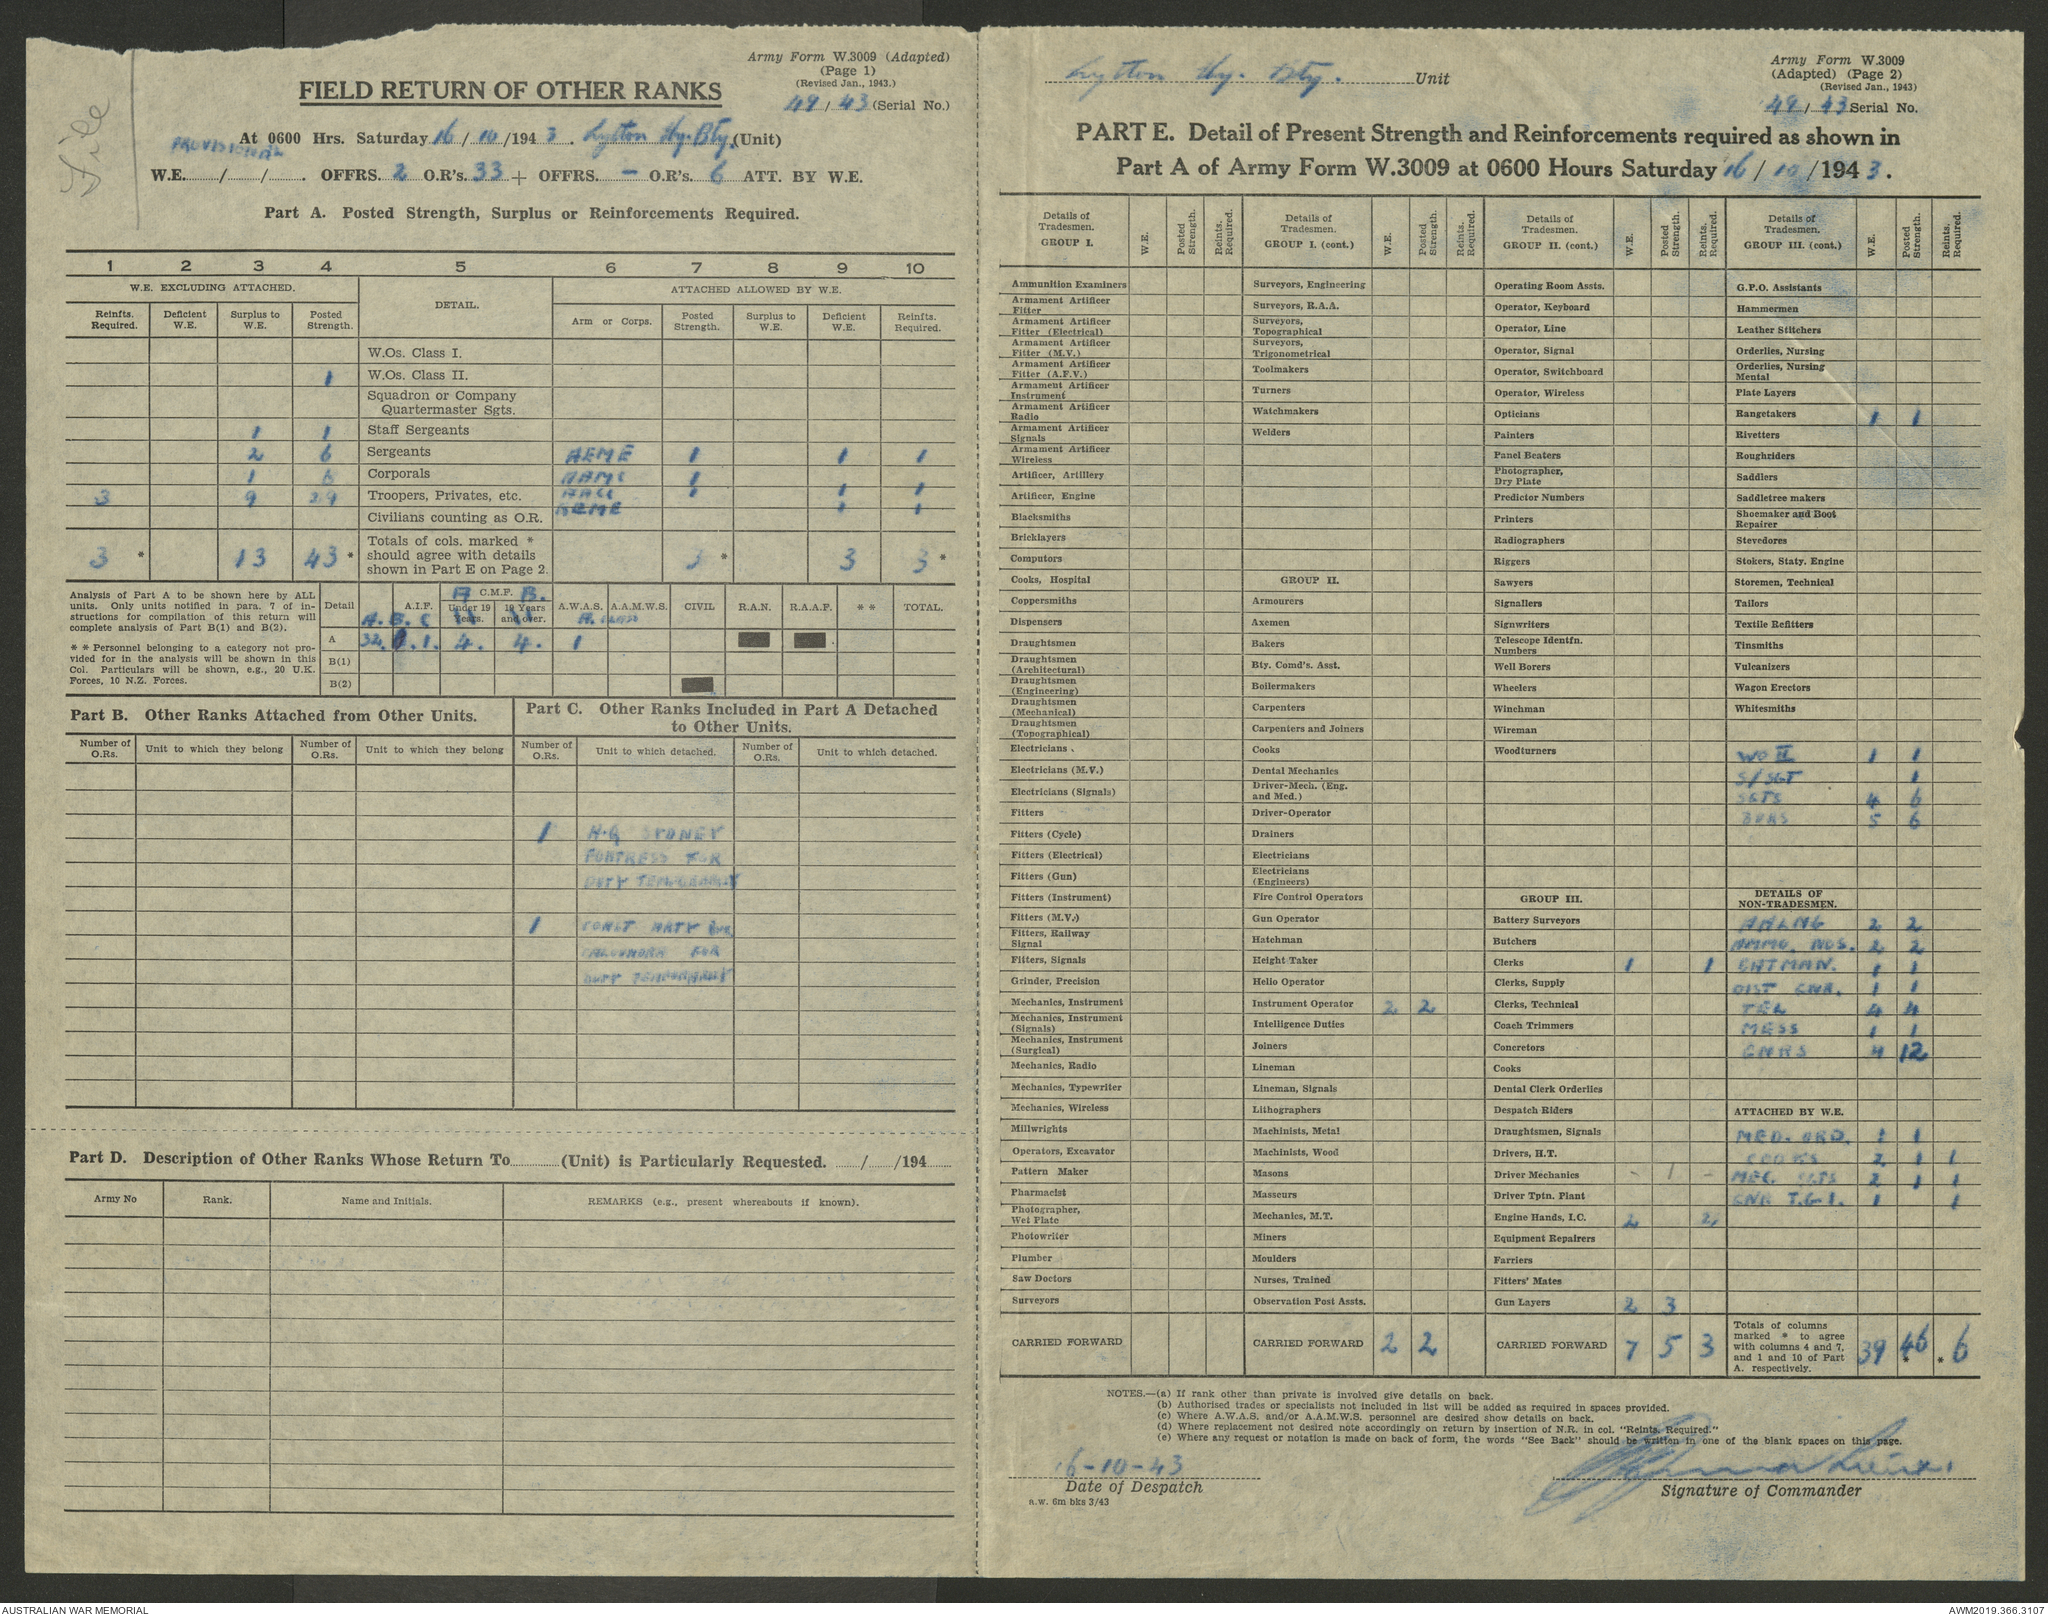 File
Army Form W.3009 (Adapted)
(Page 1)
(Revised Jan., 1943.)
FIELD RETURN OF OTHER RANKS
49/43 (Serial No.)
At 0600 Hrs. Saturday 16/10/1943. Lytton Hy. Bty. (Unit)
PROVISIONAL
W.E. ....../....../...... OFFRS. 2 O.R's. 33 + OFFRS. - O.R's. 6 ATT. BY W.E.
Part A. Posted Strength, Surplus or Reinforcements Required.
1 2 3 4 5 6 7 8 9 10
W.E. EXCLUDING ATTACHED. DETAIL. ATTACHED ALLOWED BY W.E.
Reinfts. Required. Deficient W.E. Surplus to W.E. Posted Strength. Arm or Corps. Posted Strength. Surplus to W.E. Deficient W.E. Reinfts. Required.
W.Os. Class I.
1 W.Os. Class II.
Squadron or Company
Quartermaster Sgts.
1 1 Staff Sergeants
2 6 Sergeants AEME 1 1 1
1 6 Corporals AAMC 1
3 9 29 Troopers, Privates, etc. AACC 1 1 1
Civilians counting as O.R. AEME 1 1
3 * 13 43 * Totals of cols. marked * should agree with details shown in Part E on Page 2. 3 * 3 3 *
Analysis of Part A to be shown here by ALL
units. Only units notified in para. 7 of in-
structions for compilation of this return will
complete analysis of Part B(1) and B(2).
* * Personnel belonging to a category not pro-
vided for in the analysis will be shown in this
Col. Particulars will be shown, e.g., 20 U.K.
Forces, 10 N.Z. Forces.
Detail A.I.F. C.M.F. Under 19 Years. 19 Years and over. A.W.A.S. A.A.M.W.S. CIVIL R.A.N. R.A.A.F. * * TOTAL.
A. B. C A B.
A 32. 1. 4. 4. 1
B(1)
B(2)
Part B. Other Ranks Attached from Other Units.
Part C. Other Ranks Included in Part A Detached
to Other Units.
Number of O.Rs. Unit to which they belong Number of O.Rs. Unit to which they belong Number of O.Rs. Unit to which detached. Number of O.Rs. Unit to which detached.
1 H.Q SYDNEY
FORTRESS FOR
DUTY TEMPORARILY
1 COAST ARTY
CALOUNDRA FOR
DUTY TEMPORARILY
Part D. Description of Other Ranks Whose Return To............(Unit) is Particularly Requested. ....../....../194......
Army No Rank. Name and Initials. REMARKS (e.g., present whereabouts if known).
Lytton Hy. Bty. Unit
Army Form W.3009
(Adapted) (Page 2)
(Revised Jan., 1943)
49/43 Serial No.
PART E. Detail of Present Strength and Reinforcements required as shown in
Part A of Army Form W.3009 at 0600 Hours Saturday 16/10/1943.
Details of Tradesmen. GROUP I. W.E. Posted Strength. Reints. Required.
Ammunition Examiners
Armament Artificer Fitter
Armament Artificer Fitter (Electrical)
Armament Artificer Fitter (M.V.)
Armament Artificer Fitter (A.F.V.)
Armament Artificer Instrument
Armament Artificer Radio
Armament Artificer Signals
Armament Artificer Wireless
Artificer, Artillery
Artificer, Engine
Blacksmiths
Bricklayers
Computors
Cooks, Hospital
Coppersmiths
Dispensers
Draughtsmen
Draughtsmen (Architectural)
Draughtsmen (Engineering)
Draughtsmen (Mechanical)
Draughtsmen (Topographical)
Electricians
Electricians (M.V.)
Electricians (Signals)
Fitters
Fitters (Cycle)
Fitters (Electrical)
Fitters (Gun)
Fitters (Instrument)
Fitters (M.V.)
Fitters, Railway Signal
Fitters, Signals
Grinder, Precision
Mechanics, Instrument
Mechanics, Instrument (Signals)
Mechanics, Instrument (Surgical)
Mechanics, Radio
Mechanics, Typewriter
Mechanics, Wireless
Millwrights
Operators, Excavator
Pattern Maker
Pharmacist
Photographer, Wet Plate
Photowriter
Plumber
Saw Doctors
Surveyors
CARRIED FORWARD
Details of Tradesmen. GROUP I. (cont.) W.E. Posted Strength. Reints. Required.
Surveyors, Engineering
Surveyors, R.A.A.
Surveyors, Topographical
Surveyors, Trigonometrical
Toolmakers
Turners
Watchmakers
Welders
GROUP II.
Armourers
Axemen
Bakers
Bty. Comd's. Asst.
Boilermakers
Carpenters
Carpenters and Joiners
Cooks
Dental Mechanics
Driver-Mech. (Eng. and Med.)
Driver-Operator
Drainers
Electricians
Electricians (Engineers)
Fire Control Operators
Gun Operator
Hatchman
Height Taker
Helio Operator
Instrument Operator 2 2
Intelligence Duties
Joiners
Lineman
Lineman, Signals
Lithographers
Machinists, Metal
Machinists, Wood
Masons
Masseurs
Mechanics, M.T.
Miners
Moulders
Nurses, Trained
Observation Post Assts.
CARRIED FORWARD 2 2
Details of Tradesmen. GROUP II. (cont.) W.E. Posted Strength. Reints Required.
Operating Room Assts.
Operator, Keyboard
Operator, Line
Operator, Signal
Operator, Switchboard
Operator, Wireless
Opticians
Painters
Panel Beaters
Photographer, Dry Plate
Predictor Numbers
Printers
Radiographers
Riggers
Sawyers
Signallers
Signwriters
Telescope Identfn. Numbers
Well Borers
Wheelers
Winchman
Wireman
Woodturners
GROUP III.
Battery Surveyors
Butchers
Clerks 1 1
Clerks, Supply
Clerks, Technical
Coach Trimmers
Concretors
Cooks
Dental Clerk Orderlies
Despatch Riders
Draughtsmen, Signals
Drivers, H.T.
Driver Mechanics - 1 -
Driver Tptn. Plant
Engine Hands, I.C. 2 2
Equipment Repairers
Farriers
Fitters' Mates
Gun Layers 2 3
CARRIED FORWARD 7 5 3
Details of Tradesmen. GROUP III. (cont.) W.E. Posted Strength. Reints. Required.
G.P.O. Assistants
Hammermen
Leather Stitchers
Orderlies, Nursing
Orderlies, Nursing Mental
Plate Layers
Rangetakers 1 1
Rivetters
Roughriders
Saddlers
Saddletree makers
Shoemaker and Boot Repairer
Stevedores
Stokers, Staty. Engine
Storemen, Technical
Tailors
Textile Refitters
Tinsmiths
Vulcanizers
Wagon Erectors
Whitesmiths
WO II 1 1
S/SGT 1
SGTS 4 6
BDRS 5 6
DETAILS OF NON-TRADESMEN.
2 2
AMMO. NOS. 2 2
BATMAN. 1 1
DIST GNR. 1 1
TEL 4 4
MESS 1 1
GNRS 4 12
ATTACHED BY W.E.
MED. ORD. 1 1
COOKS 2 1 1
MEC. SGTS 2 1 1
GNR T.G.I. 1 1
Totals of columns marked * to agree with columns 4 and 7, and 1 and 10 of Part A. respectively. 39 46 * * 6
NOTES.—(a) If rank other than private is involved give details on back.
(b) Authorised trades or specialists not included in list will be added as required in spaces provided.
(c) Where A.W.A.S. and/or A.A.M.W.S. personnel are desired show details on back.
(d) Where replacement not desired note accordingly on return by insertion of N.R. in col. "Reints. Required."
(e) Where any request or notation is made on back of form, the words "See Back" should be written in one of the blank spaces on this page.
16-10-43
Date of Despatch
Signature of Commander
a.w. 6m bks 3/43
AUSTRALIAN WAR MEMORIAL
AWM2019.366.3107